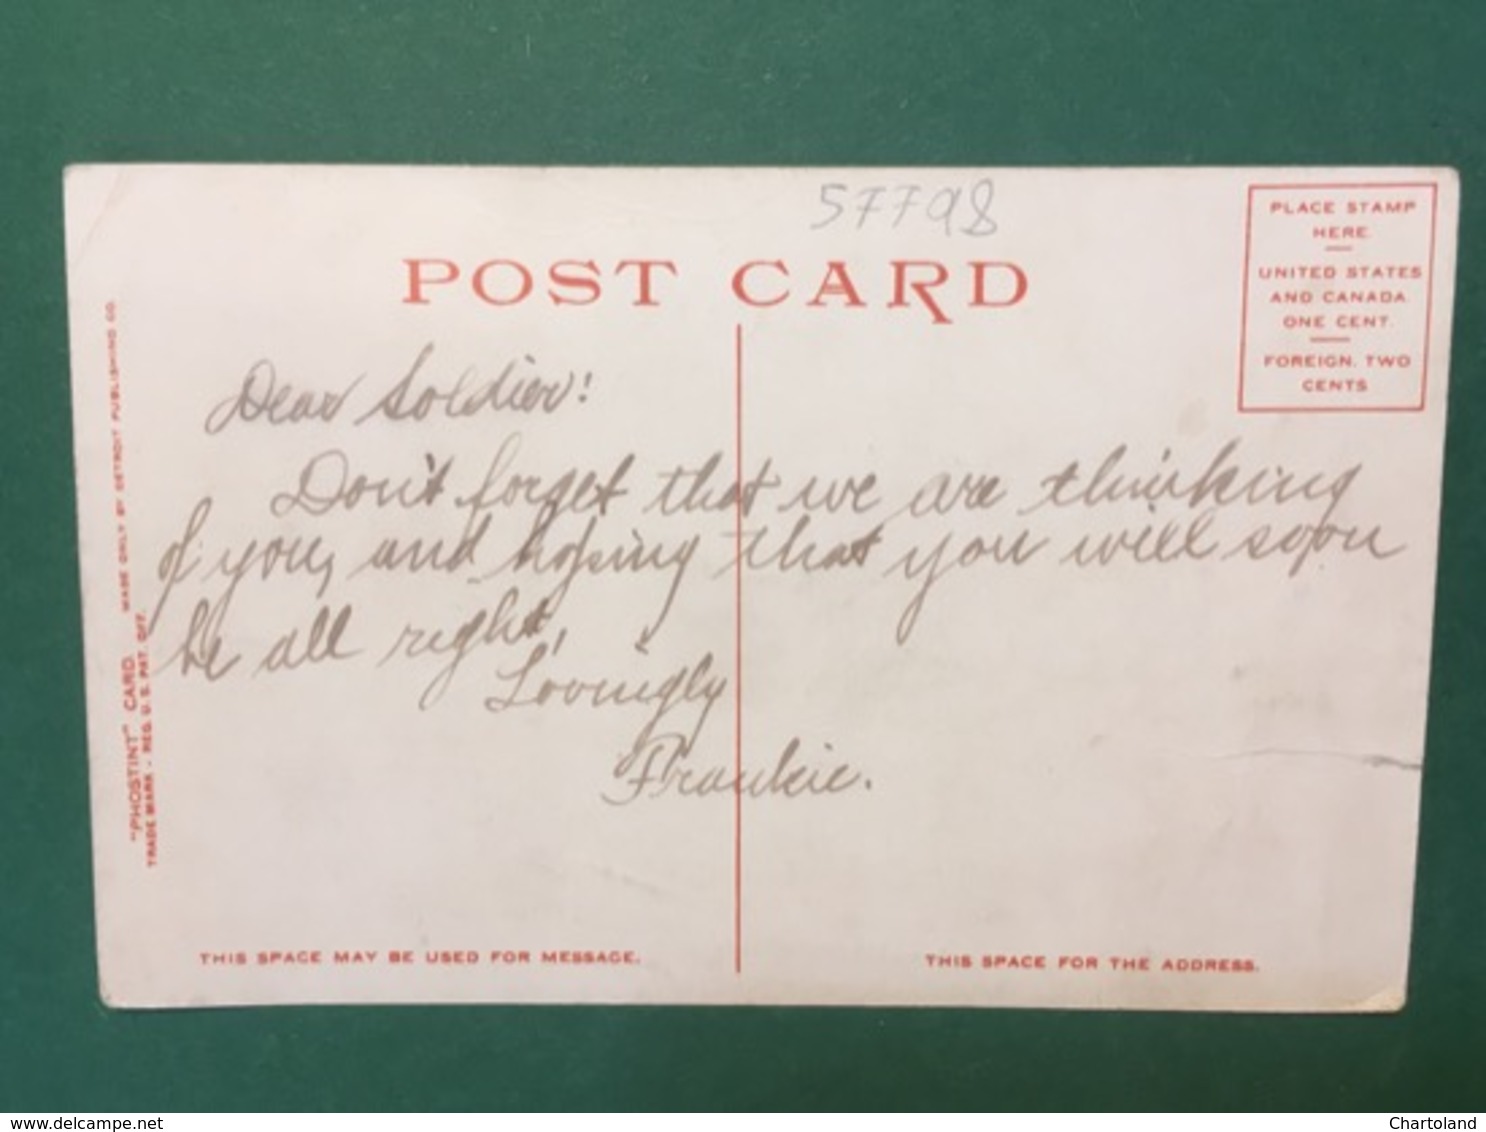 57798
POST CARD
PLACE STAMP
HERE.
UNITED STATES
AND CANADA
ONE CENT.
FOREIGN. TWO
CENTS
Dear Soldier!
Don't forget that we are thinking
of you, and hoping that you will soon
be all right,
Lovingly
Frankie.
"PHOSTINT" CARD. MADE ONLY BY DETROIT PUBLISHING CO.
TRADE MARK - REG. U.S. PAT. OFF.
THIS SPACE MAY BE USED FOR MESSAGE.
THIS SPACE FOR THE ADDRESS.
www.delcampe.net
Chartoland